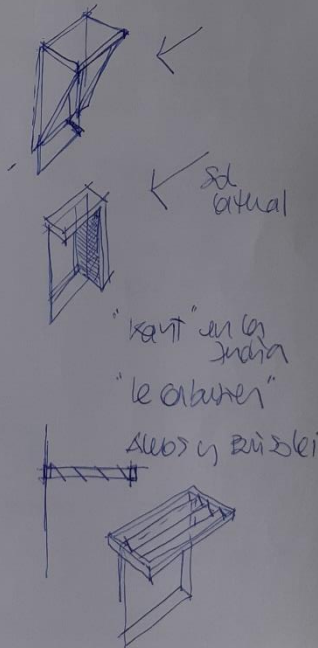 Sol
lateral
"Kant" en la
India
"le Corbusier"
Aleros y Brisolei